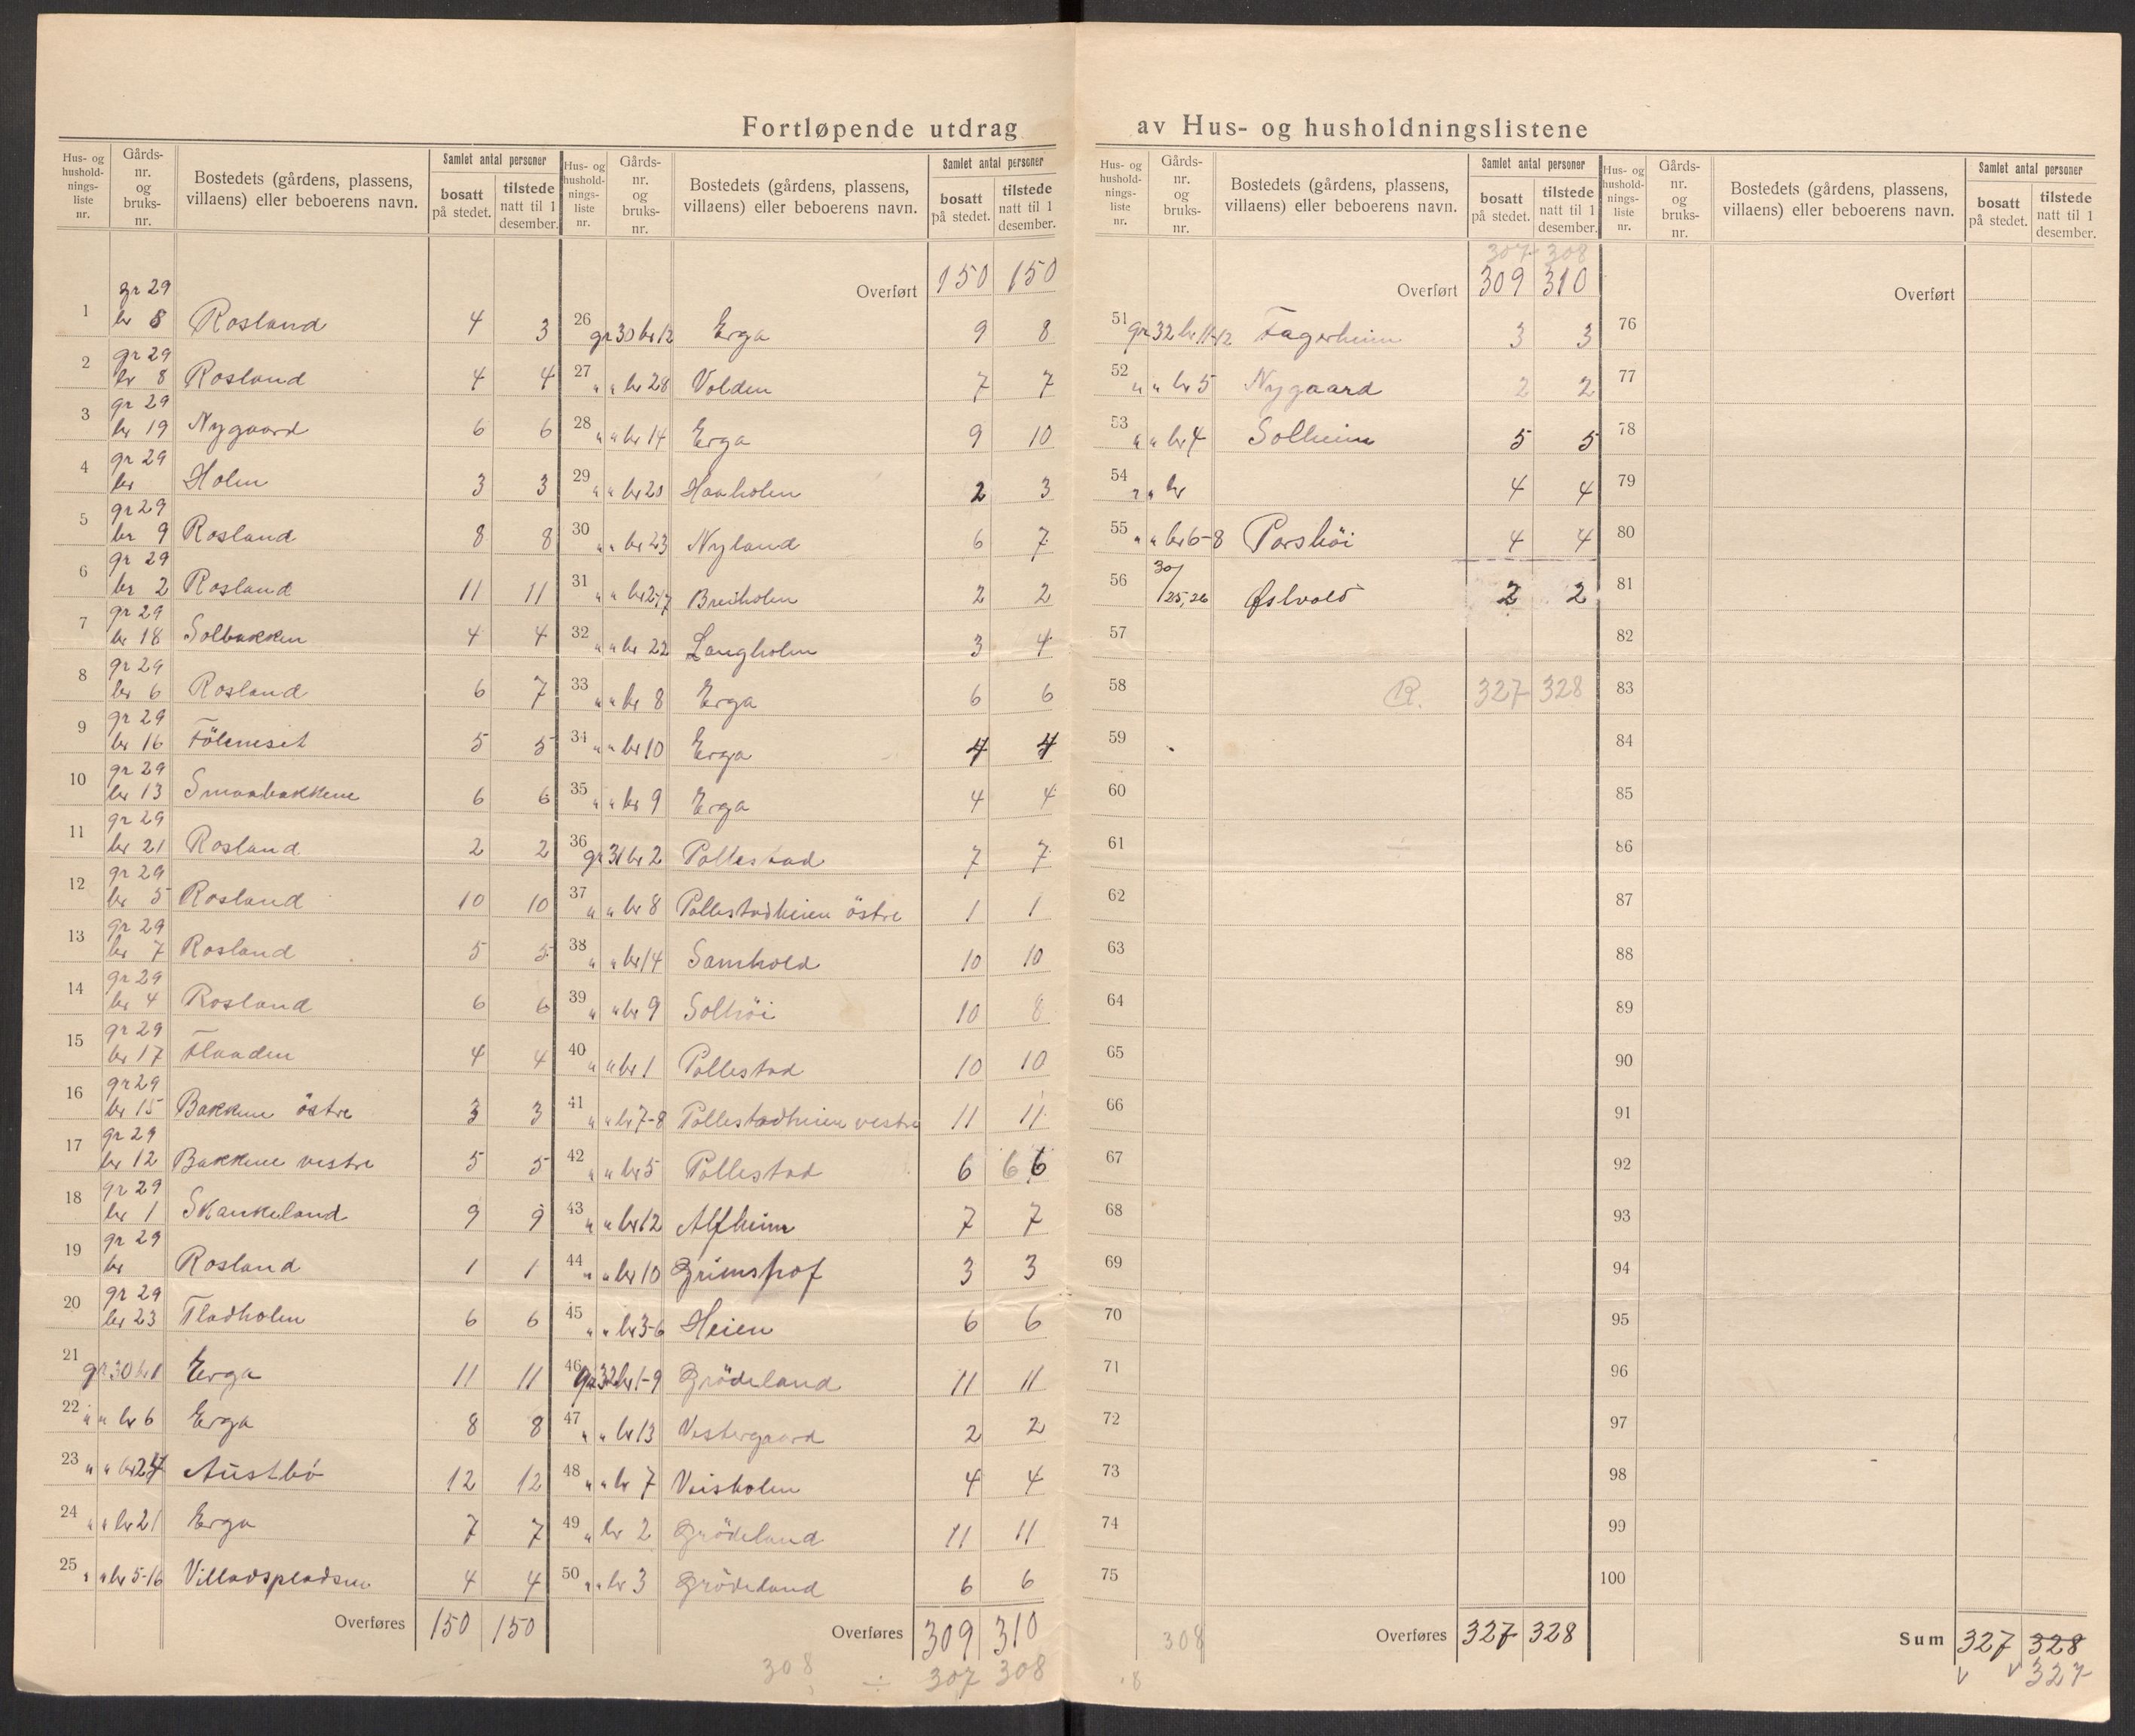 Fortløpende utdrag av Hus- og husholdningslistene
Hus- og husholdningsliste nr. | Gårds-nr. og bruks-nr. | Bostedets (gårdens, plassens, villaens) eller beboerens navn. | Samlet antal personer | bosatt på stedet. | tilstede natt til 1 desember.
1 gr 29 br 8 Rosland 4 3
2 gr 29 br 8 Rosland 4 4
3 gr 29 br 19 Nygaard 6 6
4 gr 29 br Holm 3 3
5 gr 29 br 9 Rosland 8 8
6 gr 29 br 2 Rosland 11 11
7 gr 29 br 18 Solbakken 4 4
8 gr 29 br 6 Rosland 6 7
9 gr 29 br 16 5 5
10 gr 29 br 13 Smaabakkene 6 6
11 gr 29 br 21 Rosland 2 2
12 gr 29 br 5 Rosland 10 10
13 gr 29 br 7 Rosland 5 5
14 gr 29 br 4 Rosland 6 6
15 gr 29 br 17 Flaaden 4 4
16 gr 29 br 15 Bakkene östre 3 3
17 gr 29 br 12 Bakkene vestre 5 5
18 gr 29 br 1 Skankeland 9 9
19 gr 29 br Rosland 1 1
20 gr 29 br 23 Fladholm 6 6
21 gr 30 br 1 Erga 11 11
22 " " br 6 Erga 8 8
23 " " br 24 Austbö 12 12
24 " " br 21 Erga 7 7
25 " " br 5-16 Villadspladsen 4 4
Overføres 150 150
Hus- og husholdningsliste nr. | Gårds-nr. og bruks-nr. | Bostedets (gårdens, plassens, villaens) eller beboerens navn. | Samlet antal personer | bosatt på stedet. | tilstede natt til 1 desember.
Overført 150 150
26 gr 30 br 12 Erga 9 8
27 " " br 28 Volden 7 7
28 " " br 14 Erga 9 10
29 " " br 20 Haaholm 2 3
30 " " br 23 Nyland 6 7
31 " " br 2-17 Breiholm 2 2
32 " " br 22 Langholm 3 4
33 " " br 8 Erga 6 6
34 " " br 10 Erga 4 4
35 " " br 9 Erga 4 4
36 gr 31 br 2 Pollestad 7 7
37 " " br 8 Pollestadheien östre 1 1
38 " " br 14 Samhold 10 10
39 " " br 9 Solhöi 10 8
40 " " br 1 Pollestad 10 10
41 " " br 7-8 Pollestadheien vestre 11 11
42 " " br 5 Pollestad 6 6 6
43 " " br 12 Alfheim 7 7
44 " " br 10 Grimshof 3 3
45 " " br 3-6 Heien 6 6
46 gr 32 br 1-9 Grödeland 11 11
47 " " br 13 Vestergaard 2 2
48 " " br 7 Veisholm 4 4
49 " br 2 Grödeland 11 11
50 " " br 3 Grödeland 6 6
Overføres 309 310
308 ÷ 307 308
Hus- og husholdningsliste nr. | Gårds-nr. og bruks-nr. | Bostedets (gårdens, plassens, villaens) eller beboerens navn. | Samlet antal personer | bosatt på stedet. | tilstede natt til 1 desember.
307 308
Overført 309 310
51 gr 32 br 11-12 Fagerheim 3 3
52 " " br 5 Nygaard 2 2
53 " " br 4 Solheim 5 5
54 " " br 4 4
55 " " br 6-8 Porshöi 4 4
56 30/25,26 Østvold 2 2
57
58 R. 327 328
59
60
61
62
63
64
65
66
67
68
69
70
71
72
73
74
75
308 Overføres 327 328
8
Hus- og husholdningsliste nr. | Gårds-nr. og bruks-nr. | Bostedets (gårdens, plassens, villaens) eller beboerens navn. | Samlet antal personer | bosatt på stedet. | tilstede natt til 1 desember.
Overført
76
77
78
79
80
81
82
83
84
85
86
87
88
89
90
91
92
93
94
95
96
97
98
99
100
Sum 327 328
327